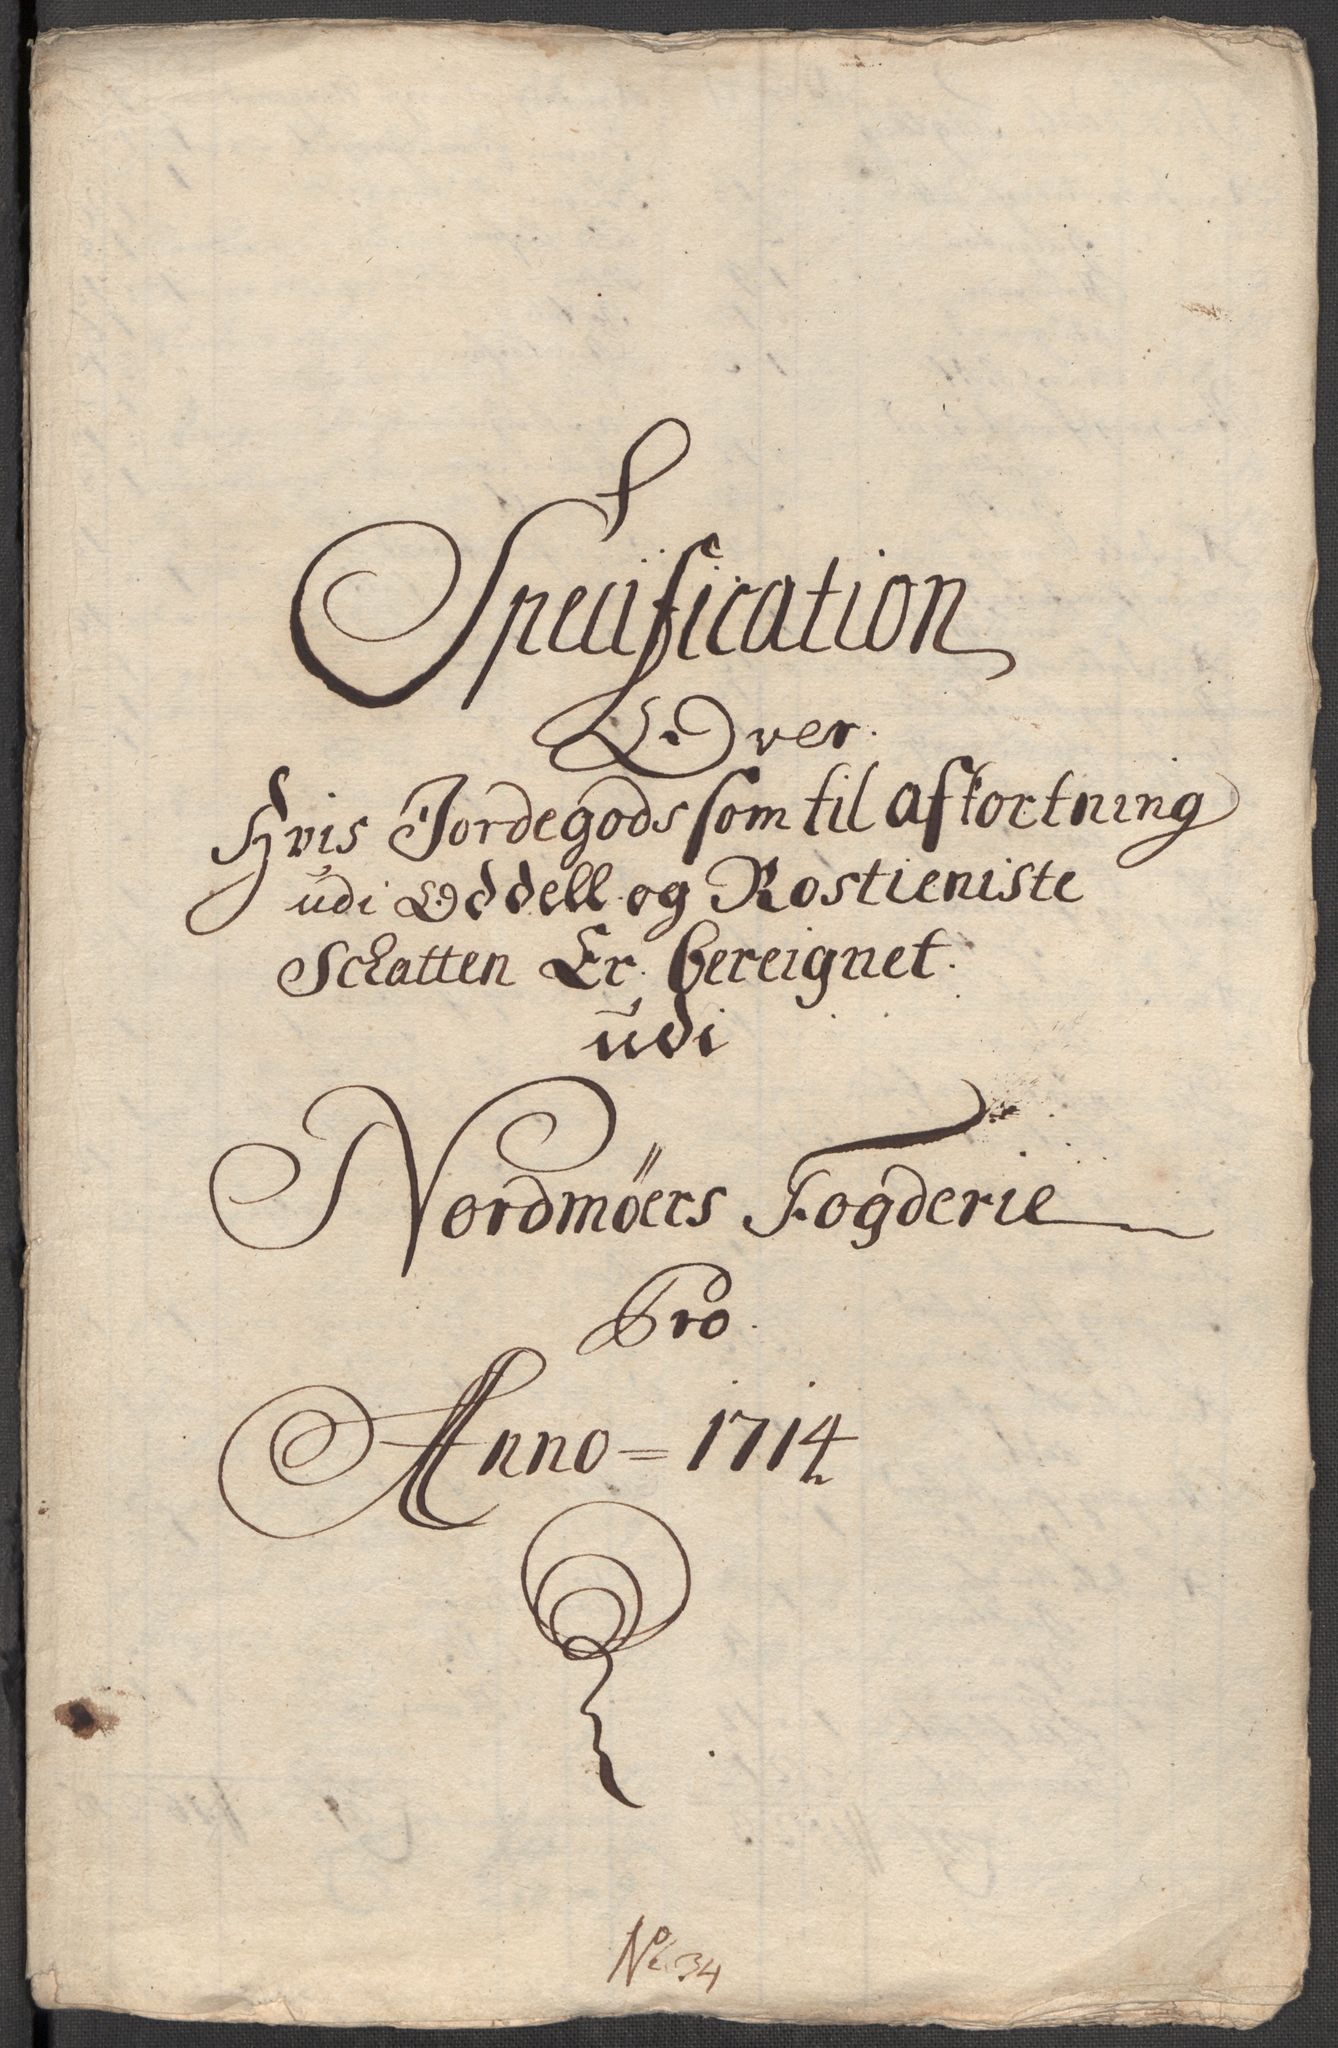 Specification
Over
Hvis Jordegods som til afkortning
udi Oddell og Rostieniste
Schatten Er bereignet
udi
Nordmöers Fogderie
Pro
Anno = 1714
No. 34